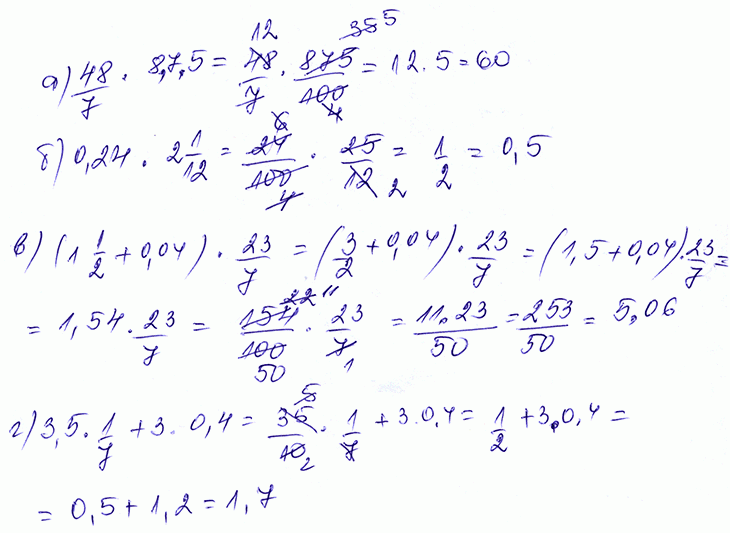 а) 48/7 · 8,7,5 = 48/7 · 875/100 = 12 · 5 = 60
б) 0,24 · 2 1/12 = 24/100 · 25/12 = 1/2 = 0,5
в) (1 1/2 + 0,04) · 23/7 = (3/2 + 0,04) · 23/7 = (1,5 + 0,04) · 23/7 =
= 1,54 · 23/7 = 154/100 · 23/7 = 11 · 23/50 = 253/50 = 5,06
г) 3,5 · 1/7 + 3 · 0,4 = 35/10 · 1/7 + 3 · 0,4 = 1/2 + 3,0,4 =
= 0,5 + 1,2 = 1,7